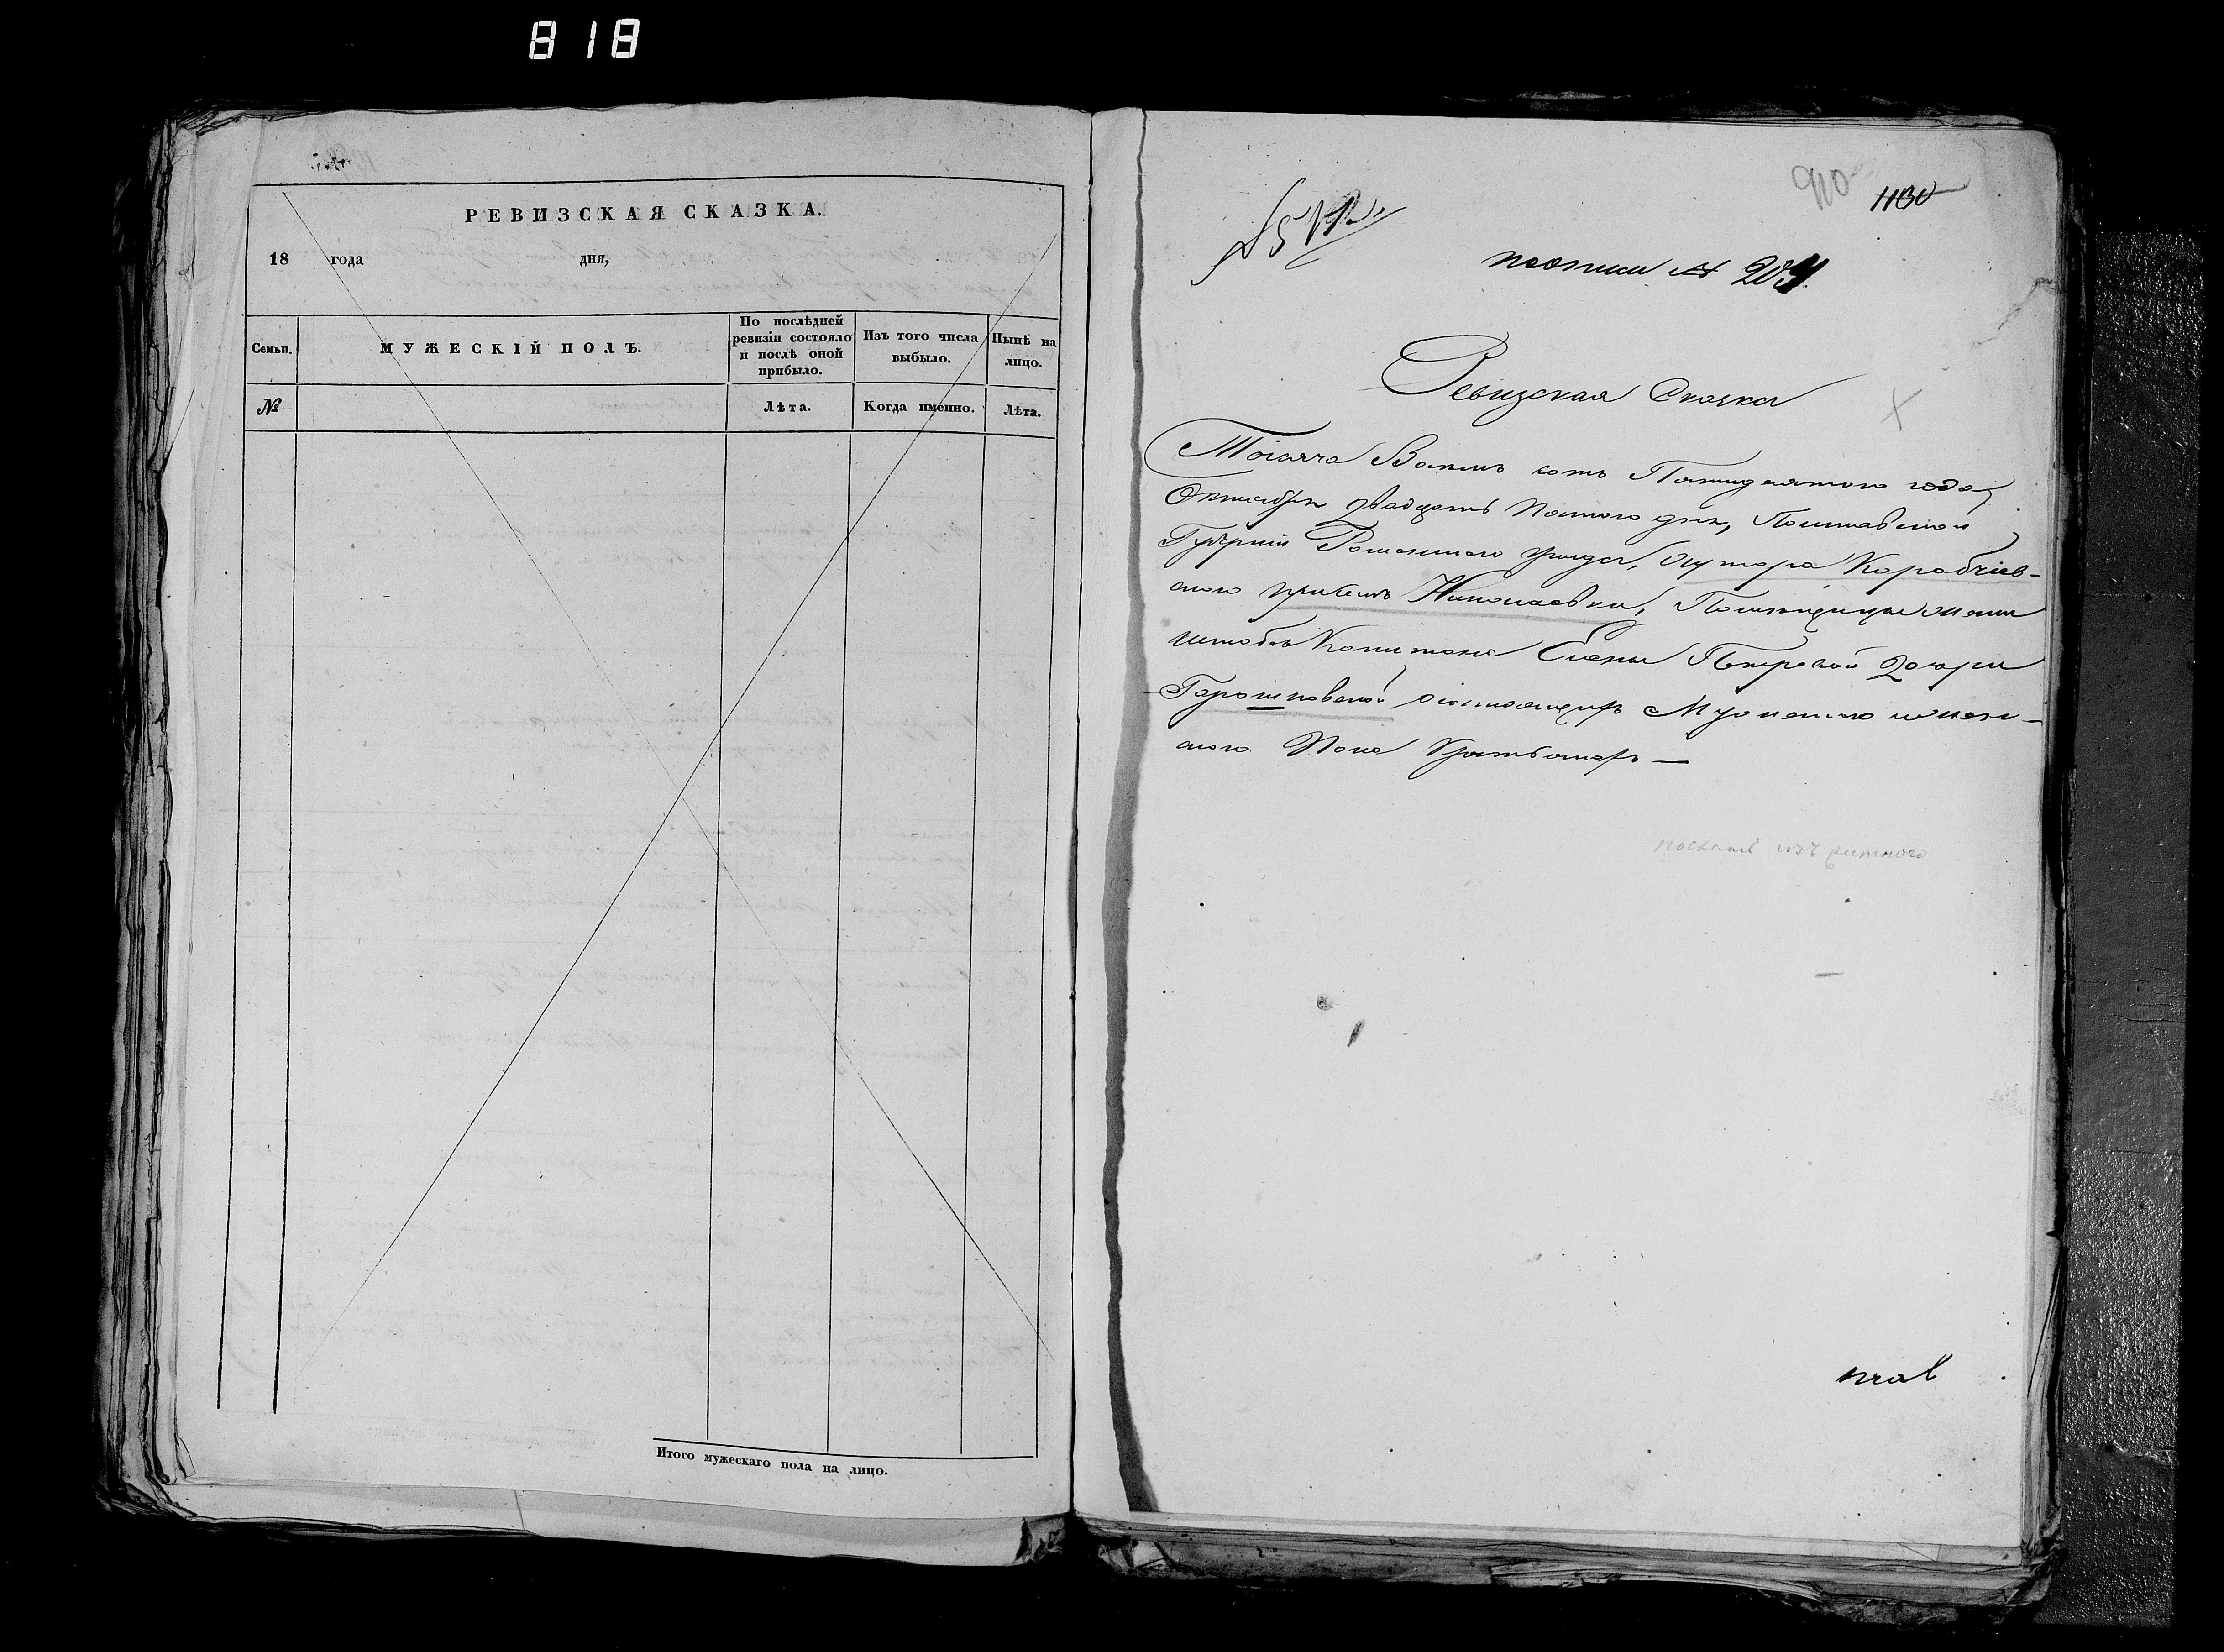 818
РЕВИЗСКАЯ СКАЗКА.
18 года дня,
Семьи. МУЖЕСКІЙ ПОЛЪ. По послѣдней ревизіи состояло и послѣ оной прибыло. Изъ того числа выбыло. Нынѣ на лицо.
№ Лѣта. Когда именно. Лѣта.
Итого мужескаго пола на лицо.
910
1130
по описи № 204
Ревизская Сказка
Тысяча Восемь сотъ Пятидесятого года,
Октября двадцать Пятого дня, Полтавской
Губерніи Роменского уезда, Хутора Коробчіев-
ского Николаевки, Помѣщицы жены
штабсъ Капитана Елены Петровой дочери
Горошковской о состоящихъ Мужеска и жен-
ского Пола Крестьянахъ —